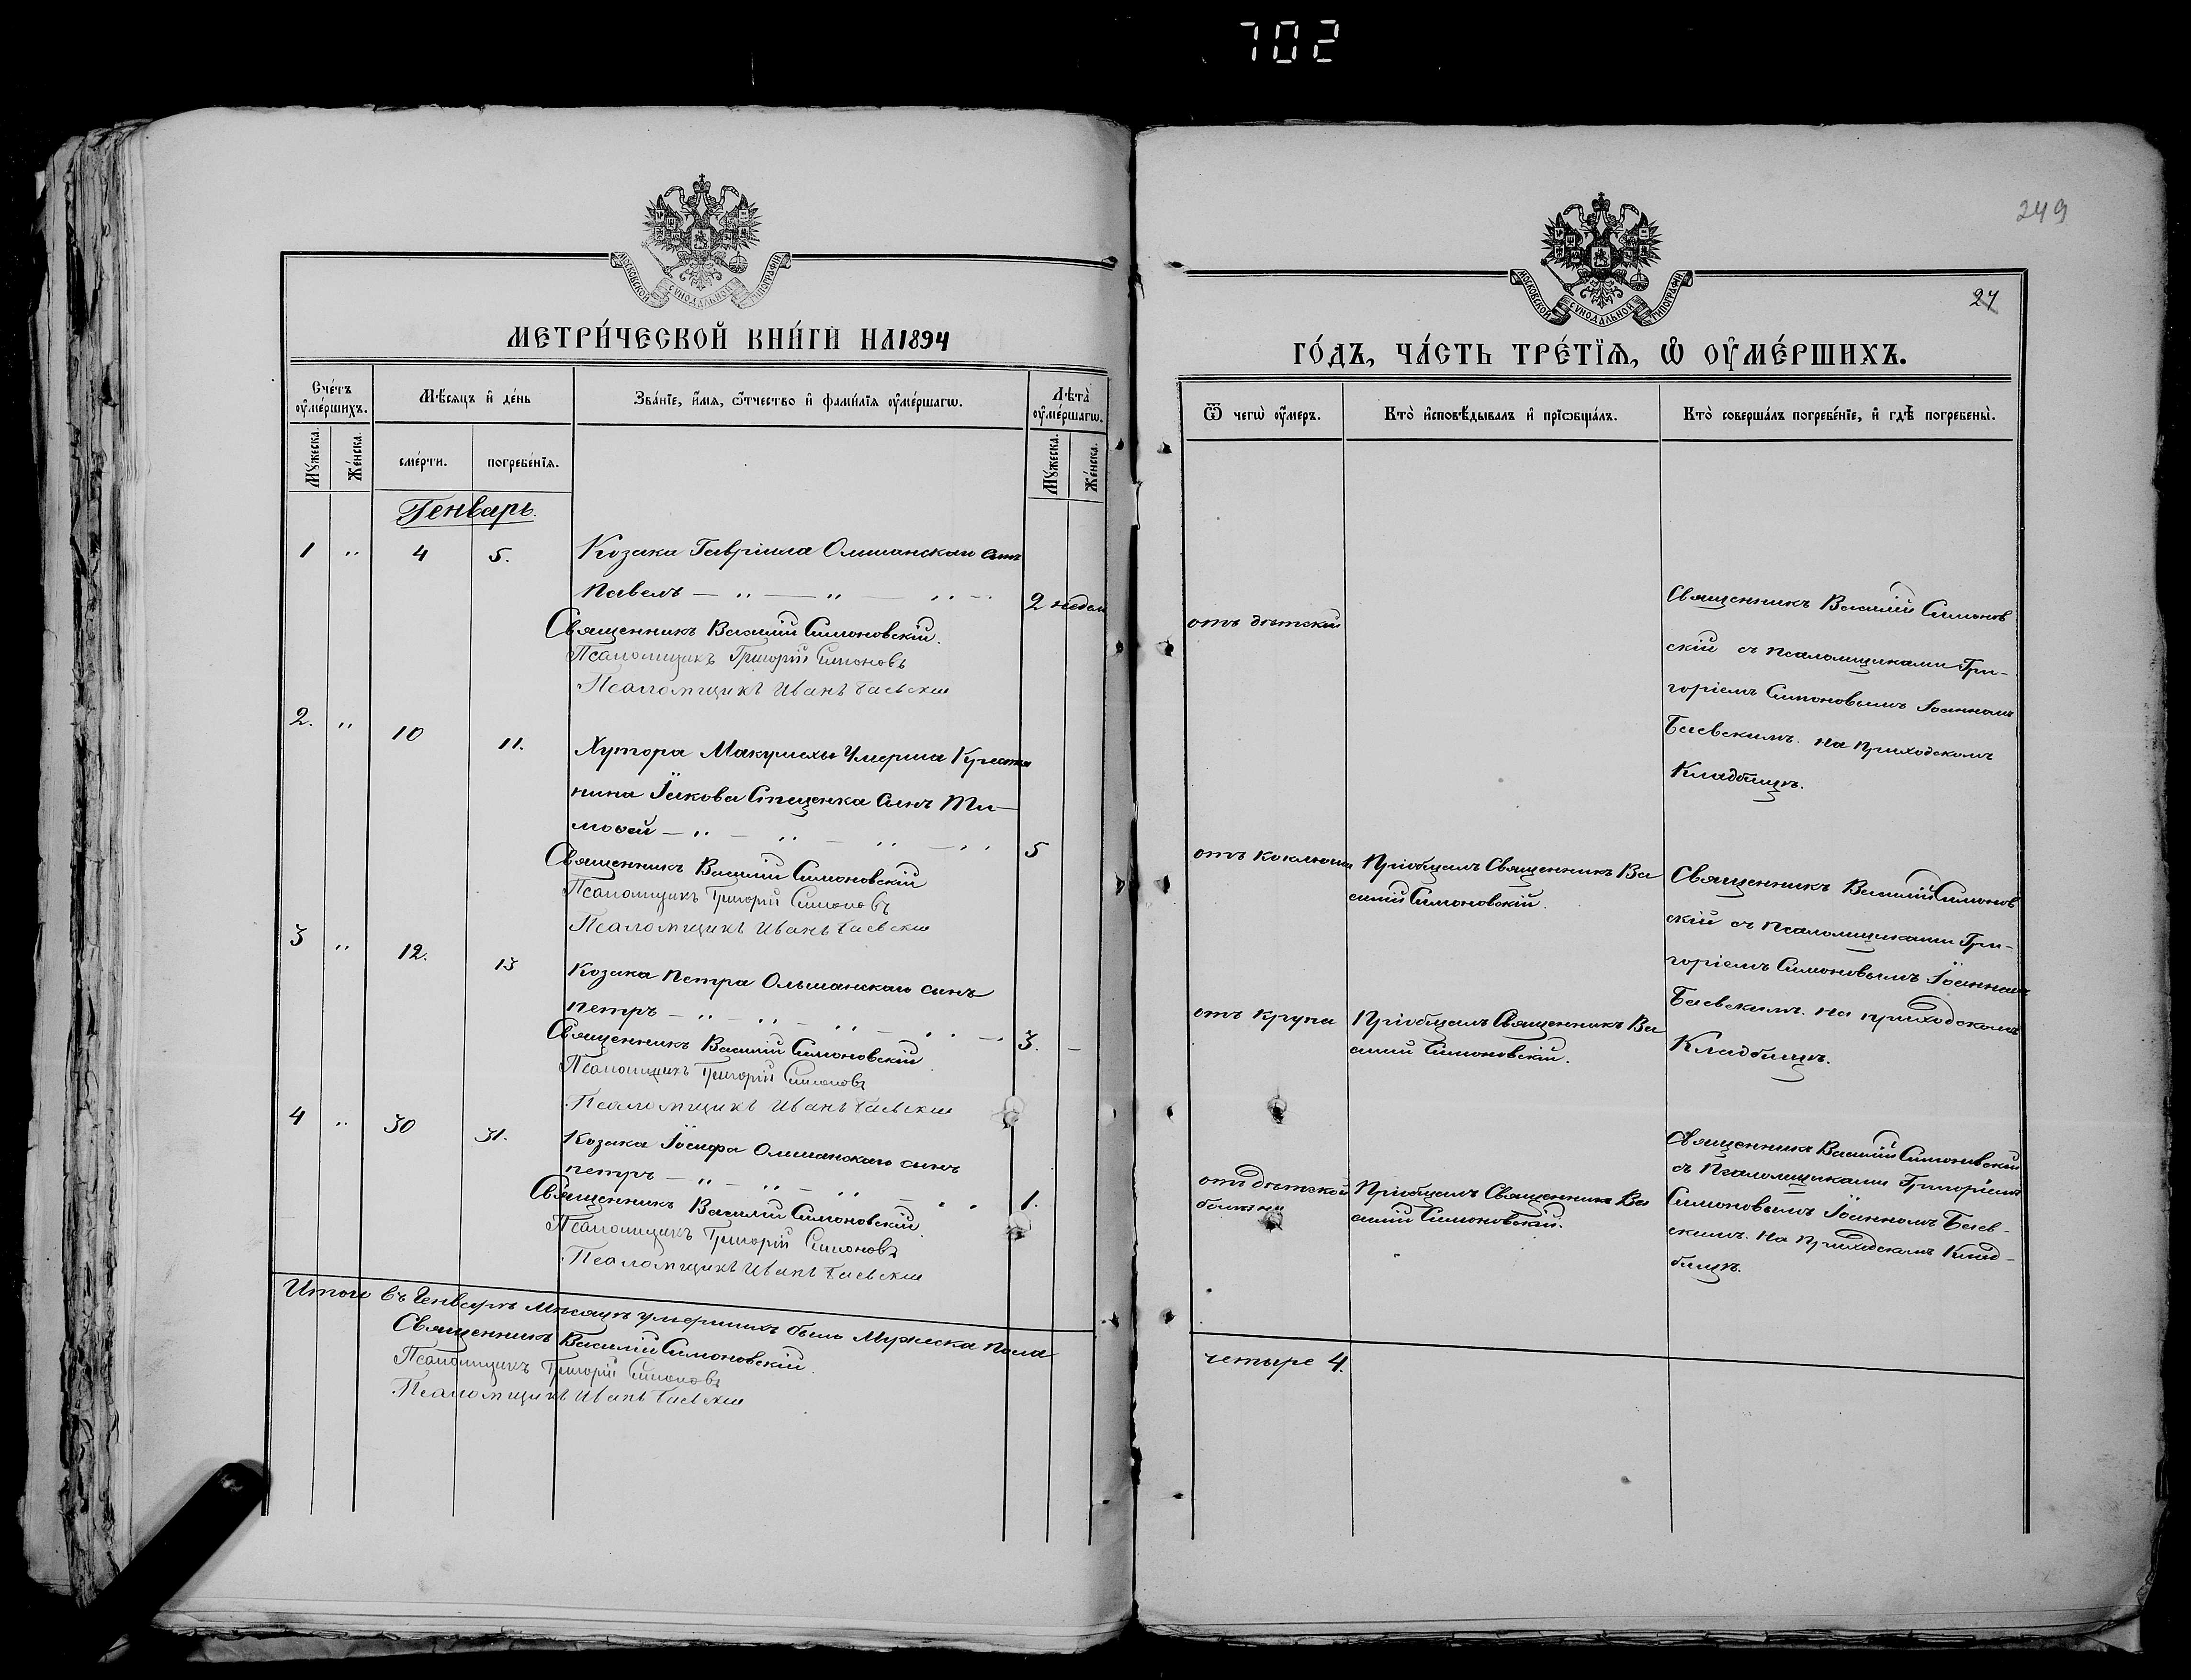 702
249
МОСКОВСКОЙ СѴНОДАЛЬНОЙ ТИПОГРАФІИ
МЕТРИ́ЧЕСКОЙ КНИ́ГИ НА 1894
Сче́тъ ᲂу҆ме́ршихъ.
Мꙋ́жеска.
Же́нска.
Мѣ́сяцъ и҆ де́нь
сме́рти.
погребе́нїѧ.
Зва́нїе, и҆́мѧ, ѻ҆́тчество и҆ фами́лїѧ ᲂу҆ме́ршагѡ.
Лѣ́та ᲂу҆ме́ршагѡ.
Мꙋ́жеска.
Же́нска.
Генварь.
1 " 4 5. Козака Гавріила Олшанскаго сынъ
Павелъ — " — " — " — 2 недел
Священникъ Василій Симоновскій.
Псаломщикъ Григорій Симоновъ
Псаломщикъ Иванъ Баевскій
2. " 10 11. Хутора Макушехи Умерша Крестья
нина Іакова Стеценка сынъ Ти-
моѳей — " — " — " — " 5
Священникъ Василій Симоновскій
Псаломщикъ Григорій Симоновъ
Псаломщикъ Иванъ Баевскій
3 " 12. 13 Козака Петра Ольшанскаго сынъ
Петръ — " — " — " — " — 3. —
Священникъ Василій Симоновскій.
Псаломщикъ Григорій Симоновъ
Псаломщикъ Иванъ Баевскій
4 " 30 31. Козака Іосифа Олшанскаго сынъ
Петръ — " — " — " — " " 1.
Священникъ Василій Симоновскій.
Псаломщикъ Григорій Симоновъ
Псаломщикъ Иванъ Баевскій
Итого въ Генварѣ мѣсяцѣ умершихъ было Мужеска пола
Священникъ Василій Симоновскій.
Псаломщикъ Григорій Симоновъ
Псаломщикъ Иванъ Баевскій
МОСКОВСКОЙ СѴНОДАЛЬНОЙ ТИПОГРАФІИ
ГО́ДЪ, ЧА́СТЬ ТРЕ́ТЇѦ, Ѡ҆ ОУ҆МЕ́РШИХЪ.
Ѿ чегѡ̀ ᲂу҆́меръ.
Кто̀ и҆сповѣ́дывалъ и҆ прїѡбща́лъ.
Кто̀ соверша́лъ погребе́нїе, и҆ гдѣ̀ погребены̀.
отъ дѣтской
Священникъ Василій Симонов
скій съ псаломщиками Гри-
горіемъ Симоновымъ Іоанномъ
Баевскимъ. на приходскомъ
Кладбищѣ.
отъ коклюша
Пріобщалъ Священникъ Ва
силій Симоновскій.
Священникъ Василій Симонов
скій съ псаломщиками Гри-
горіемъ Симоновымъ Іоанномъ
Баевскимъ. на приходскомъ
Кладбищѣ.
отъ крупа
Пріобщалъ Священникъ Ва
силій Симоновскій.
отъ дѣтской
болѣзни
Пріобщалъ Священникъ Ва
силій Симоновскій.
Священникъ Василій Симоновскій
съ Псаломщиками Григоріемъ
Симоновымъ Іоанномъ Баев-
скимъ. на приходскомъ Клад-
бищѣ.
четыре 4.